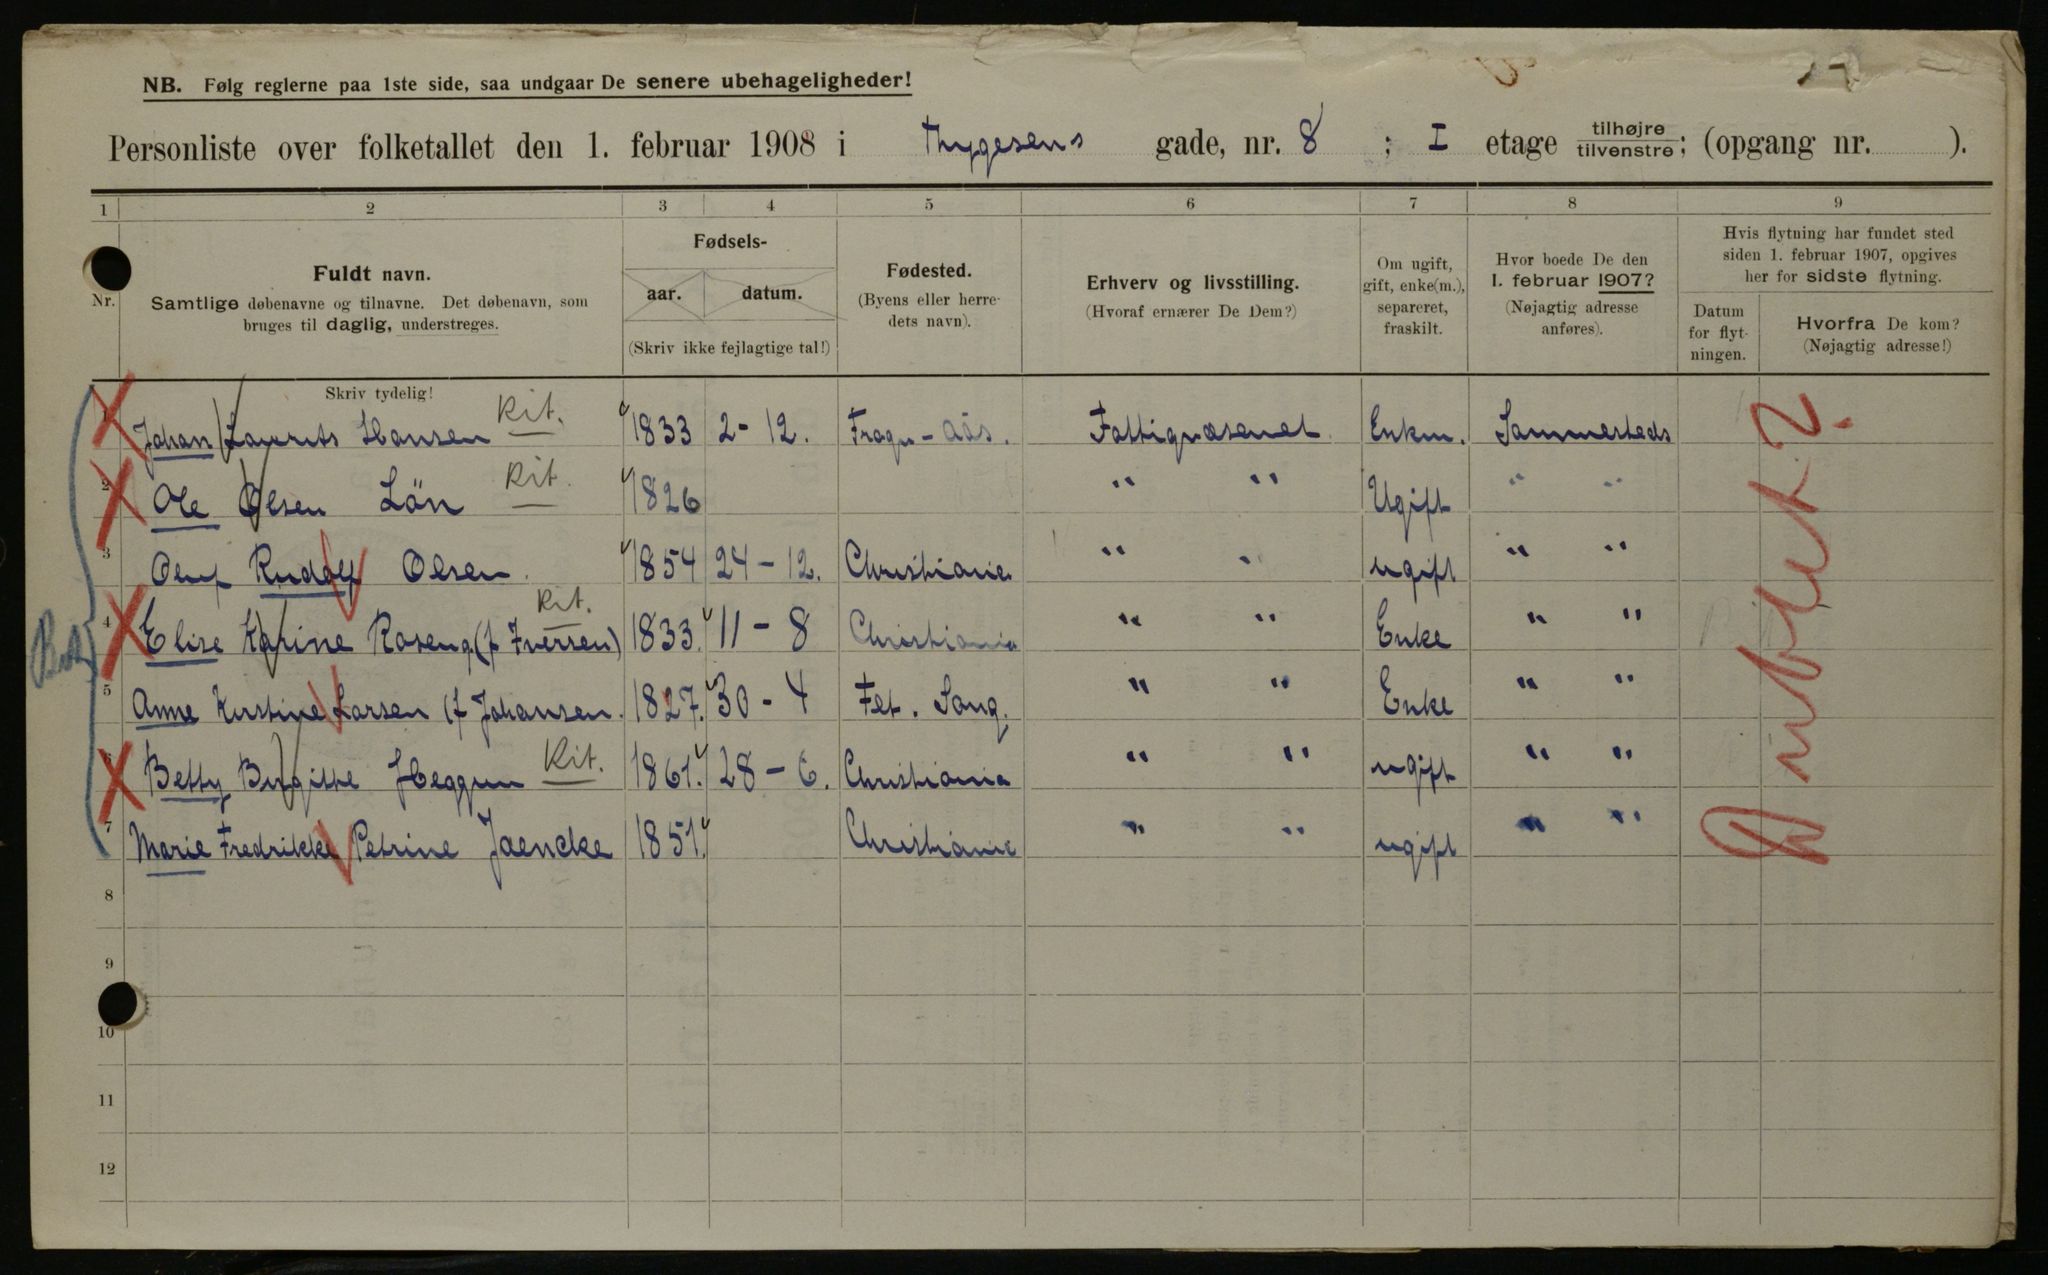 NB. Følg reglerne paa 1ste side, saa undgaar De senere ubehageligheder!
Personliste over folketallet den 1. februar 1908 i Thygesens gade, nr. 8 ; I etage tilhøjre tilvenstre; (opgang nr. ).
1 2 3 4 5 6 7 8 9
Nr.
Fuldt navn.
Samtlige døbenavne og tilnavne. Det døbenavn, som
bruges til daglig, understreges.
Skriv tydelig!
Fødsels-
aar. datum.
(Skriv ikke fejlagtige tal!)
Fødested.
(Byens eller herre-
dets navn).
Erhverv og livsstilling.
(Hvoraf ernærer De Dem?)
Om ugift,
gift, enke(m.),
separeret,
fraskilt.
Hvor boede De den
1. februar 1907?
(Nøjagtig adresse
anføres).
Hvis flytning har fundet sted
siden 1. februar 1907, opgives
her for sidste flytning.
Datum
for flyt-
ningen.
Hvorfra De kom?
(Nøjagtig adresse!)
1 Johan Laurits Hansen Rit. 1833 2-12. Frogn-Aas. Fattigvæsenet Enkm. Sammesteds
2 Ole Olsen Lön Rit. 1826 " " Ugift " "
3 Oluf Rudolf Olsen. 1854 24-12. Christiania " " ugift " "
4 Elise Karine Roseng (f Iversen) Rit. 1833. 11-8 Christiania " " Enke " "
5 Anne Kirstine Larsen (f Johansen. 1827. 30-4 Fet. " " Enke " "
6 Betty Birgitte Heggum Rit. 1861. 28-6. Christiania " " ugift " "
7 Marie Fredrikke Petrine Jaencke 1851. Christiania " " ugift " "
8
9
10
11
12